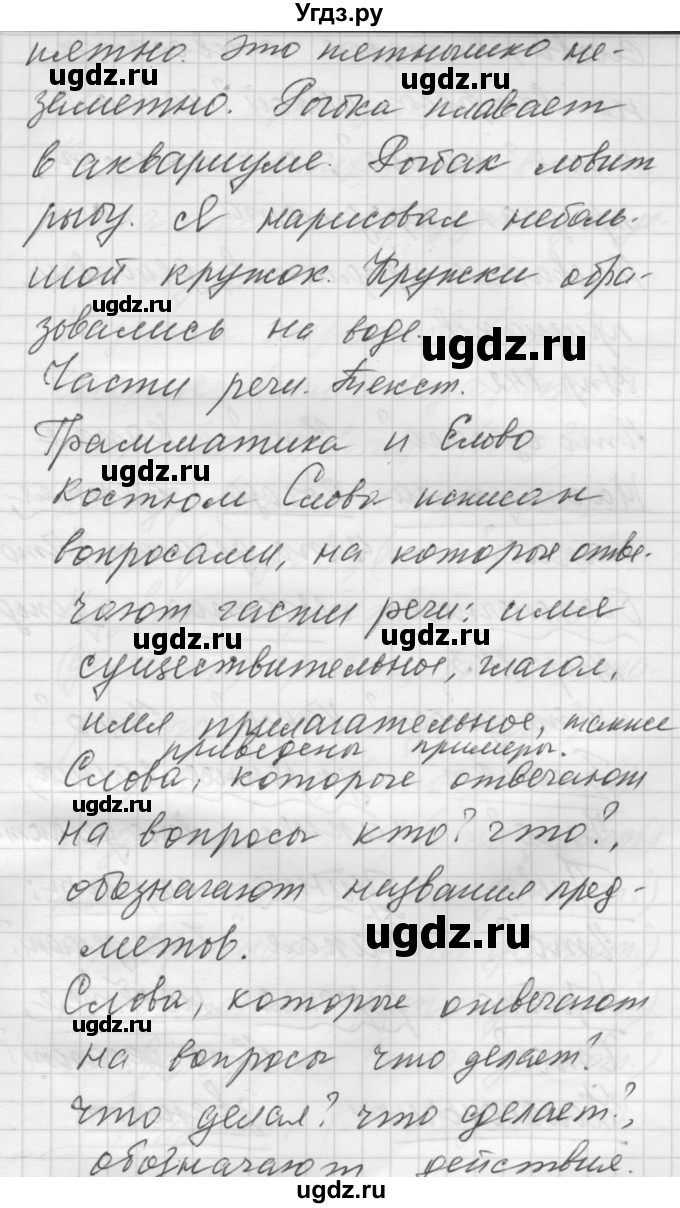 Угдз.ру
пятно. Это пятнышко не-
ugdz.ru
заметно. Рыбка плавает
в аквариуме. Рыбак ловит
ugdz.ru
рыбу. Я нарисовал неболь-
шой кружок. Кружки обра-
ugdz.ru
зовались на воде.
ugdz.ru
Части речи. Текст.
Грамматика и Слово
ugdz.ru
Костюм Слова исписан
вопросами, на которые отве-
чают части речи: имя
ugdz.ru ugdz.ru
существительное, глагол,
имя прилагательное, также
приведены примеры.
Слова, которые отвечают
ugdz.ru
на вопросы кто? что?,
обозначают названия пред-
ugdz.ru ugdz.ru
метов.
Слова, которые отвечают
ugdz.ru
на вопросы что делает?
что делал? что сделает?,
обозначают действия.
ugdz.ru